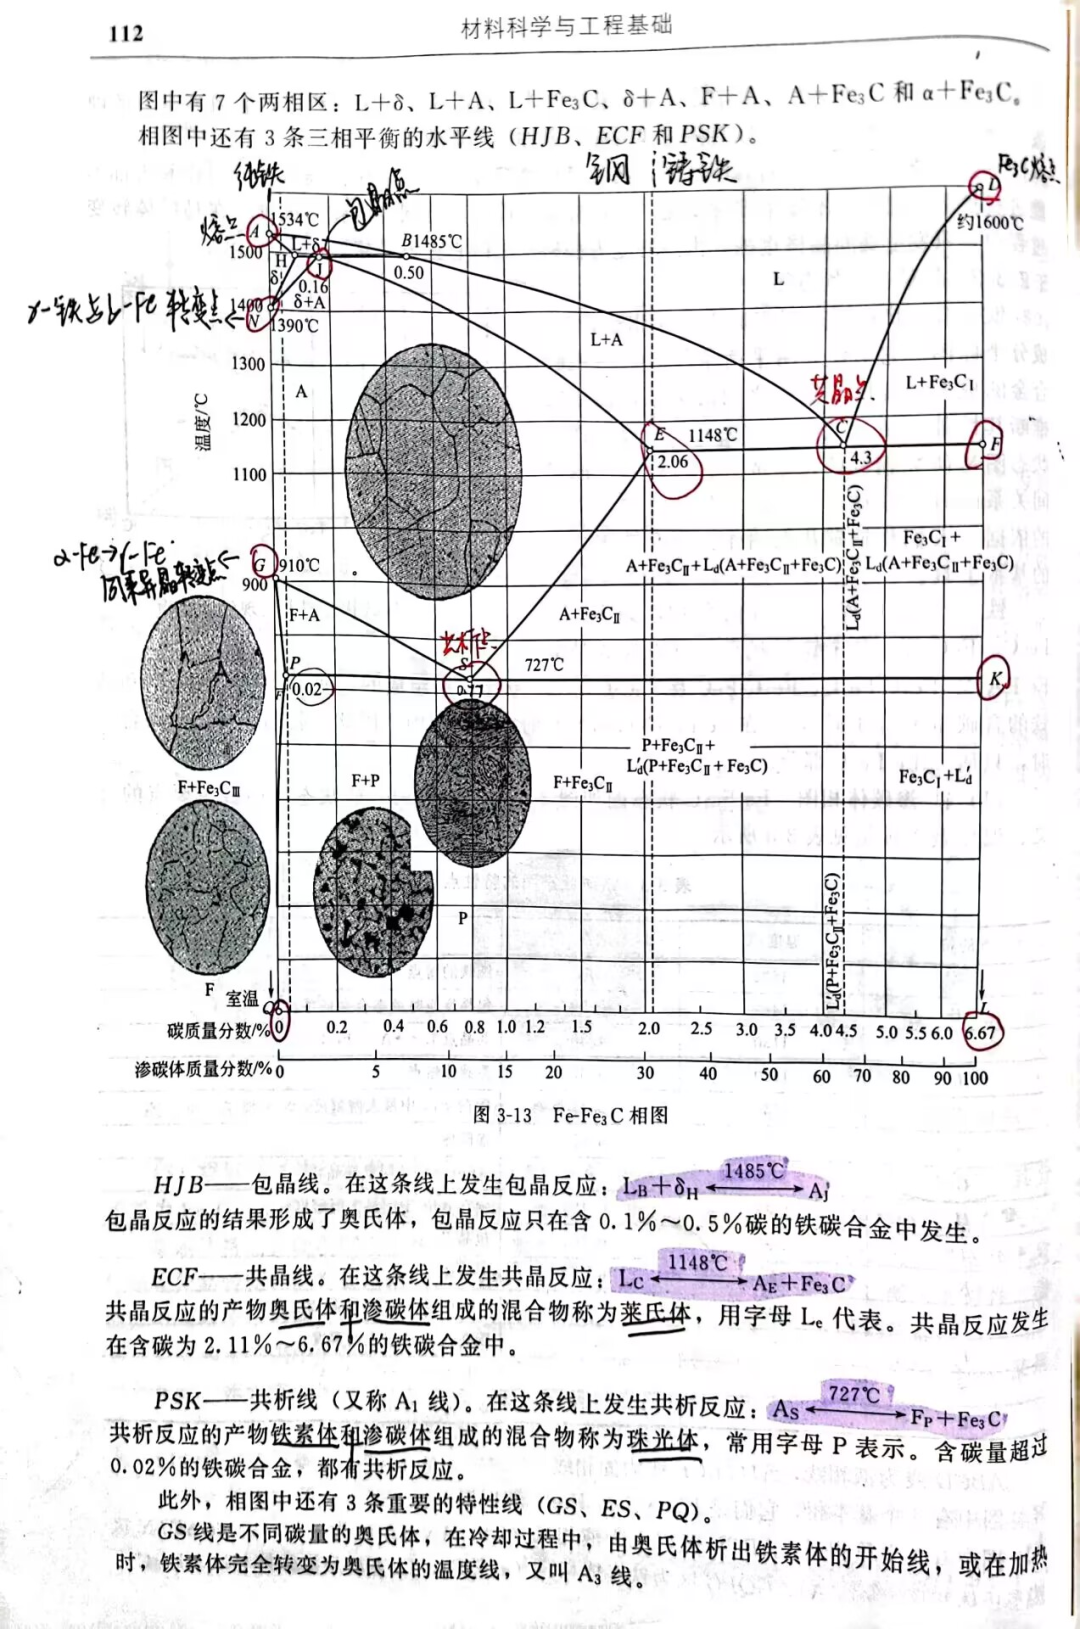 112
材料科学与工程基础
图中有 7 个两相区：L＋δ、L＋A、L＋Fe₃C、δ＋A、F＋A、A＋Fe₃C 和 α＋Fe₃C。
相图中还有 3 条三相平衡的水平线（HJB、ECF 和 PSK）。
纯铁
包晶点
钢
铸铁
Fe₃C熔点
熔点
A
1534℃
D
约1600℃
L+δ
B1485℃
1500
H
J
0.50
δ
0.16
L
γ-铁与δ-Fe 转变点
1400
δ+A
N
1390℃
L+A
1300
A
共晶点
L+Fe₃CⅠ
温度/℃
1200
E
1148℃
C
F
2.06
4.3
1100
Ld(A+Fe₃CⅡ+Fe₃C)
α-Fe→γ-Fe
同素异晶转变点
G
910℃
900
Fe₃CⅠ+
A+Fe₃CⅡ+Ld(A+Fe₃CⅡ+Fe₃C)
Ld(A+Fe₃CⅡ+Fe₃C)
F+A
A+Fe₃CⅡ
共析点
P
S
727℃
K
F
0.02
0.77
A
P+Fe₃CⅡ+
L′d(P+Fe₃CⅡ+Fe₃C)
F+Fe₃CⅢ
F+P
F+Fe₃CⅡ
Fe₃CⅠ+L′d
P
L′d(P+Fe₃CⅡ+Fe₃C)
F
室温
Q
L
碳质量分数/% 0 0.2 0.4 0.6 0.8 1.0 1.2 1.5 2.0 2.5 3.0 3.5 4.0 4.5 5.0 5.5 6.0 6.67
渗碳体质量分数/% 0 5 10 15 20 30 40 50 60 70 80 90 100
图 3-13 Fe-Fe₃C 相图
HJB——包晶线。在这条线上发生包晶反应：L_B＋δ_H ⟷(1485℃) A_J
包晶反应的结果形成了奥氏体，包晶反应只在含 0.1％～0.5％碳的铁碳合金中发生。
ECF——共晶线。在这条线上发生共晶反应：L_C ⟷(1148℃) A_E＋Fe₃C
共晶反应的产物奥氏体和渗碳体组成的混合物称为莱氏体，用字母 Lₑ 代表。共晶反应发生
在含碳为 2.11％～6.67％的铁碳合金中。
PSK——共析线（又称 A₁ 线）。在这条线上发生共析反应：A_S ⟷(727℃) F_P＋Fe₃C
共析反应的产物铁素体和渗碳体组成的混合物称为珠光体，常用字母 P 表示。含碳量超过
0.02％的铁碳合金，都有共析反应。
此外，相图中还有 3 条重要的特性线（GS、ES、PQ）。
GS 线是不同碳量的奥氏体，在冷却过程中，由奥氏体析出铁素体的开始线，或在加热
时，铁素体完全转变为奥氏体的温度线，又叫 A₃ 线。